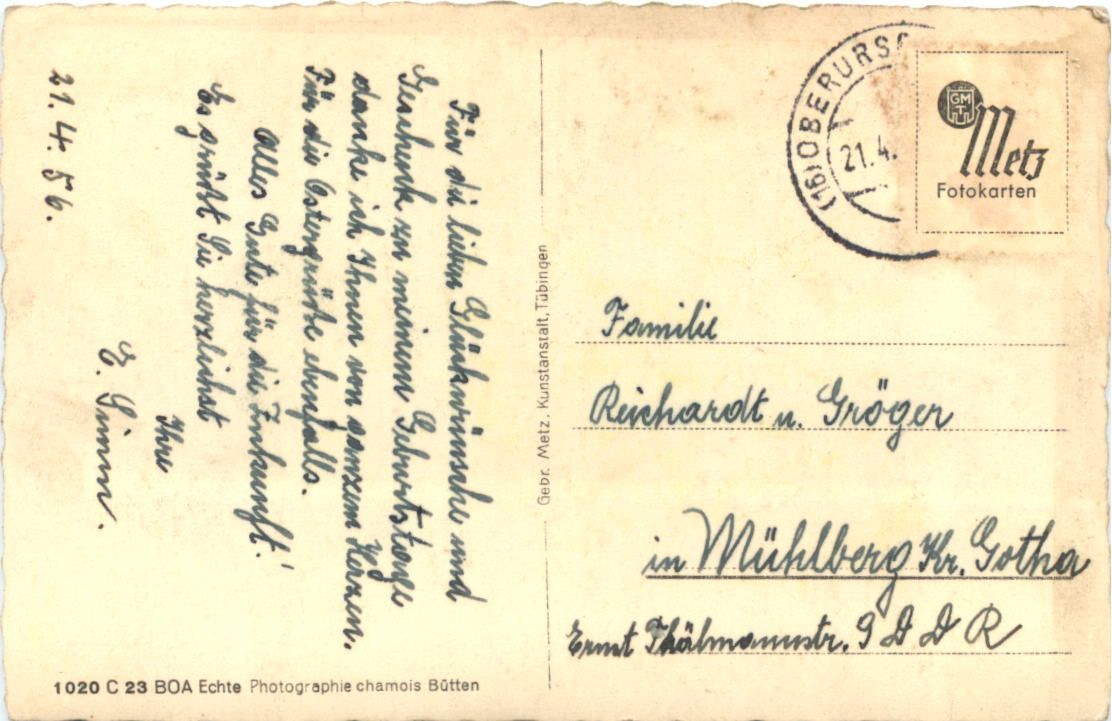 21.4.56.
Für die lieben Glückwünsche und
Geschenk zu meinem Geburtstage
danke ich Ihnen von ganzem Herzen.
Für die Ostergrüße ebenfalls.
Alles Gute für die Zukunft!
Es grüßt Sie herzlichst
Ihre
E. Simm.
Gebr. Metz, Kunstanstalt, Tübingen
(16) OBERURS
21.4.
GM
T
Metz
Fotokarten
Familie
Reichardt u. Gröger
in Mühlberg Kr. Gotha
Ernst Thälmannstr. 9 D D R
1020 C 23 BOA Echte Photographie chamois Bütten